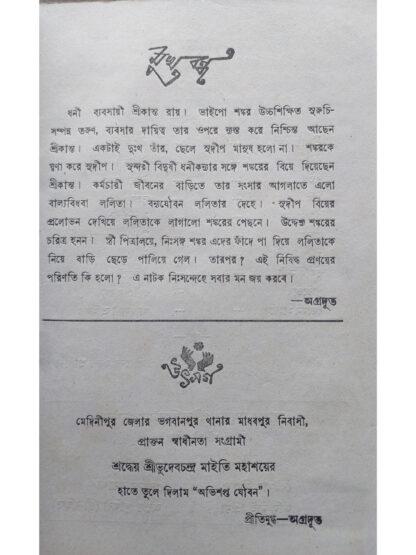 মুখবন্ধ
ধনী ব্যবসায়ী শ্রীকান্ত রায়। ভাইপো শঙ্কর উচ্চশিক্ষিত সুরুচি-
সম্পন্ন তরুণ, ব্যবসার দায়িত্ব তার ওপরে ন্যস্ত করে নিশ্চিন্ত আছেন
শ্রীকান্ত। একটাই দুঃখ তাঁর, ছেলে সুদীপ মানুষ হলো না। শঙ্করকে
ঘৃণা করে সুদীপ। সুন্দরী বিদুষী ধনীকন্যার সঙ্গে শঙ্করের বিয়ে দিয়েছেন
শ্রীকান্ত। কর্মচারী জীবনের বাড়িতে তার সংসার আগলাতে এলো
বাল্যবিধবা ললিতা। বন্যযৌবন ললিতার দেহে। সুদীপ বিয়ের
প্রলোভন দেখিয়ে ললিতাকে লাগালো শঙ্করের পেছনে। উদ্দেশ্য শঙ্করের
চরিত্র হনন। স্ত্রী পিত্রালয়ে, নিঃসঙ্গ শঙ্কর এদের ফাঁদে পা দিয়ে ললিতাকে
নিয়ে বাড়ি ছেড়ে পালিয়ে গেল। তারপর? এই নিষিদ্ধ প্রণয়ের
পরিণতি কি হলো? এ নাটক নিঃসন্দেহে সবার মন জয় করবে।
—অগ্রদূত
উৎসর্গ
মেদিনীপুর জেলার ভগবানপুর থানার মাধবপুর নিবাসী,
প্রাক্তন স্বাধীনতা সংগ্রামী
শ্রদ্ধেয় শ্রীভূদেবচন্দ্র মাইতি মহাশয়ের
হাতে তুলে দিলাম “অভিশপ্ত যৌবন”।
প্রীতিমুগ্ধ—অগ্রদূত